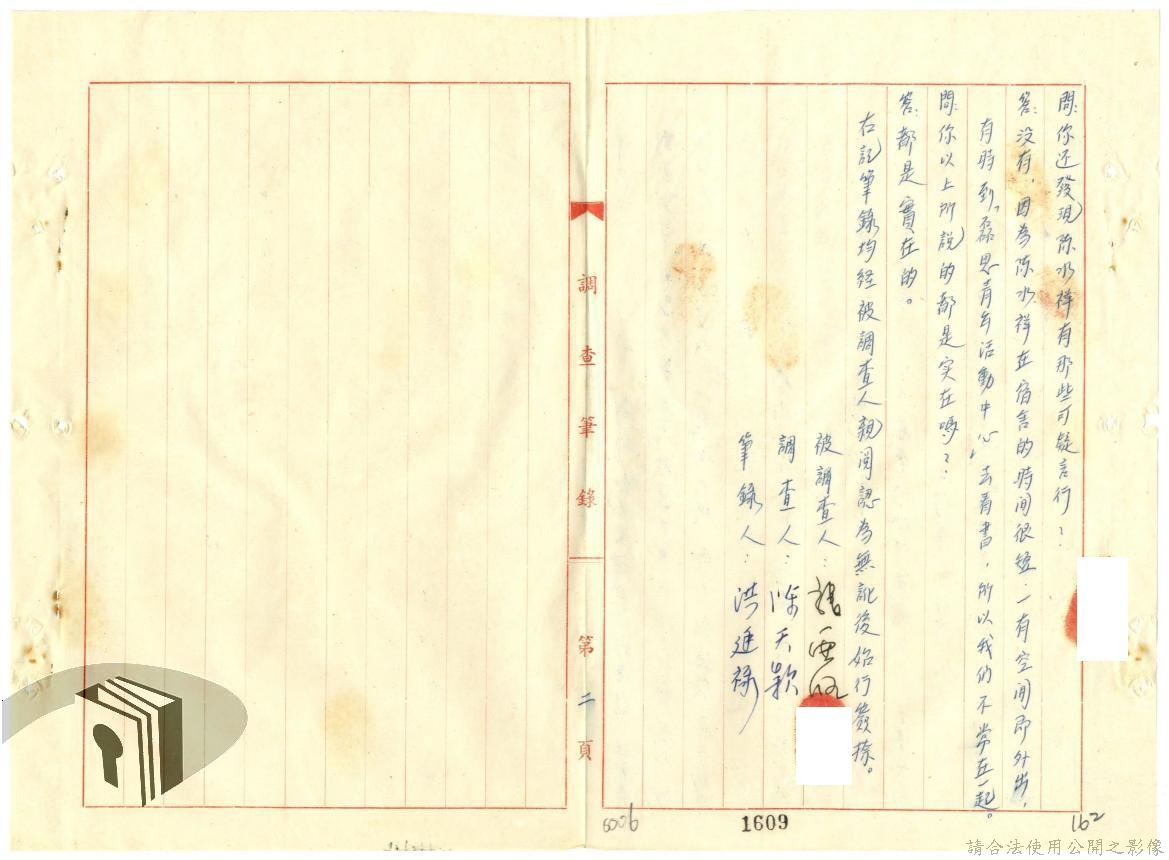 問:你还發現陈水祥有那些可疑言行?
答:没有,因為陈水祥在宿舍的時间很短,一有空间即外出,
有時到「磊思青年活動中心」去看書,所以我们不常在一起。
問:你以上所說的都是实在嗎?
答:都是實在的。
右記筆錄均経被調查人親閱認為無訛後始行簽捺。
被調查人:
調查人:陈天穎
筆錄人:洪進禄
調查筆錄
第二頁
6006
1609
162
請合法使用公開之影像